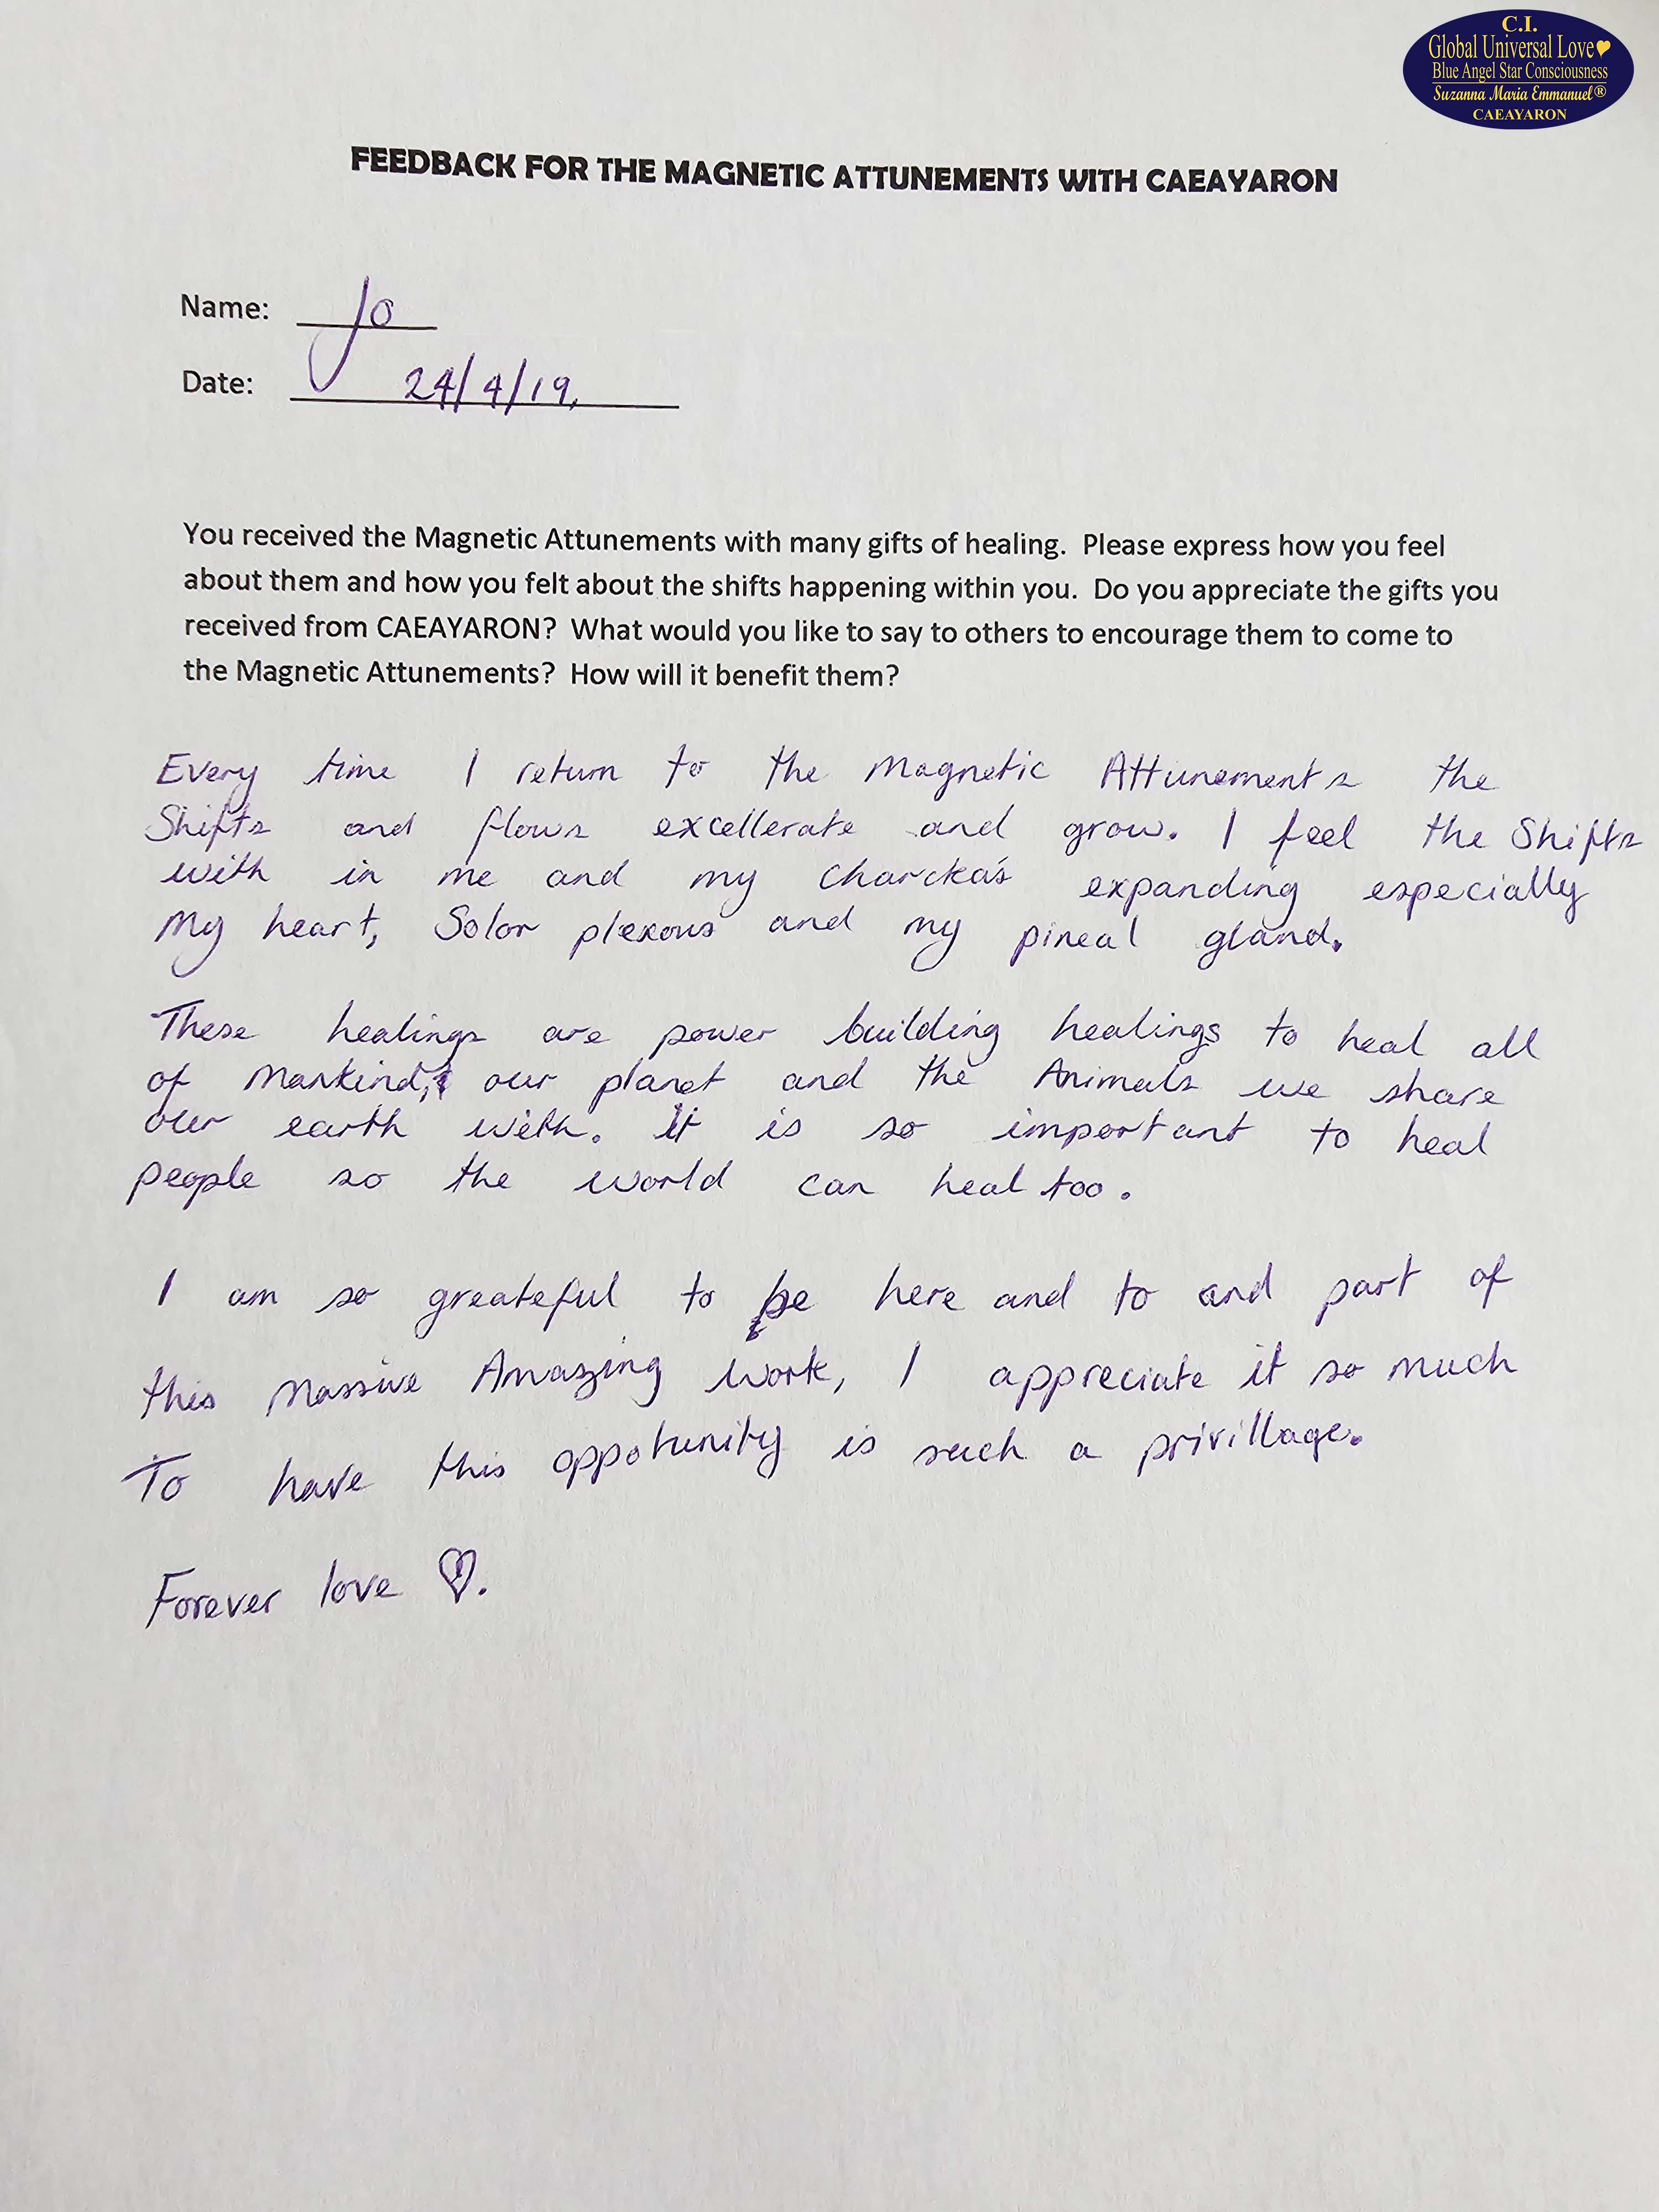 C.I.
Global Universal Love
Blue Angel Star Consciousness
Suzanna Maria Emmanuel®
CAEAYARON
FEEDBACK FOR THE MAGNETIC ATTUNEMENTS WITH CAEAYARON
Name: Jo
Date: 24/4/19.
You received the Magnetic Attunements with many gifts of healing. Please express how you feel
about them and how you felt about the shifts happening within you. Do you appreciate the gifts you
received from CAEAYARON? What would you like to say to others to encourage them to come to
the Magnetic Attunements? How will it benefit them?
Every time I return to the Magnetic Attunements the
Shifts and flows excellerate and grow. I feel the Shifts
with in me and my charcka's expanding especially
My heart, Solor plexous and my pineal gland.
These healings are power building healings to heal all
of Mankind, our planet and the Animals we share
our earth with. it is so important to heal
people so the world can heal too.
I am so greateful to be here and to and part of
this Massive Amazing work, I appreciate it so much
To have this oppotunity is such a privillage.
Forever love ♡.